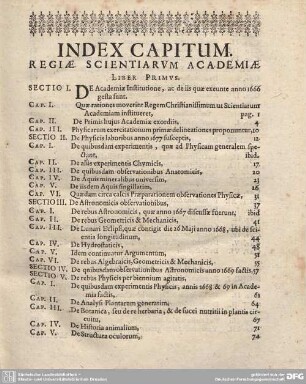 INDEX CAPITUM.
REGIÆ SCIENTIARVM ACADEMIÆ
LIBER PRIMVS.
SECTIO I. DE Academiæ Institutione, ac de iis quæ exeunte anno 1666
gesta sunt.
CAP. I. Quæ rationes moverint Regem Christianissimum ut Scientiarum
Academiam institueret, pag. 1
CAP. II. De Primis hujus Academiæ exordiis, 4
CAP. III. Physicarum exercitationum primæ delineationes proponuntur, 10
SECTIO II. De Physicis laboribus anno 1667 susceptis, 12
CAP. I. De quibusdam experimentis, quæ ad Physicam generalem spe-
ctant, ibid.
CAP. II. De aliis experimentis Chymicis, 17
CAP. III. De quibusdam observationibus Anatomicis, 20
CAP. IV. De Aquis mineralibus universim, 23
CAP. V. De iisdem Aquis singillatim,
CAP. VI. Quædam circa calcis Præparationem observationes Physicæ, 31
SECTIO III. De Astronomicis observationibus,
CAP. I. De rebus Astronomicis, quæ anno 1667 discussæ fuerunt, ibid
CAP. II. De rebus Geometricis & Mechanicis, 41
CAP. III. De Lunari Eclipsi, quæ contigit die 26 Maji anno 1668, ubi de cre-
scentis longitudinum,
CAP. IV. De Hydrostaticis, 48
CAP. V. Idem continuatur Argumentum, 51
CAP. VI. De rebus Algebraicis, Geometricis & Mechanicis,
SECTIO IV. De quibusdam observationibus Astronomicis anno 1669 factis, 57
SECTIO V. De rebus Physicis per biennium agitatis,
CAP. I. De quibusdam experimentis Physicis, annis 1668 & 69 in Acade-
mia factis, 61
CAP. II. De Analysi Plantarum generatim, 64
CAP. III. De Botanica, seu de re herbaria, & de succi nutritii in plantis cir-
cuitu, 67
CAP. IV. De Historia animalium, 71
CAP. V. De Structura oculorum, 74